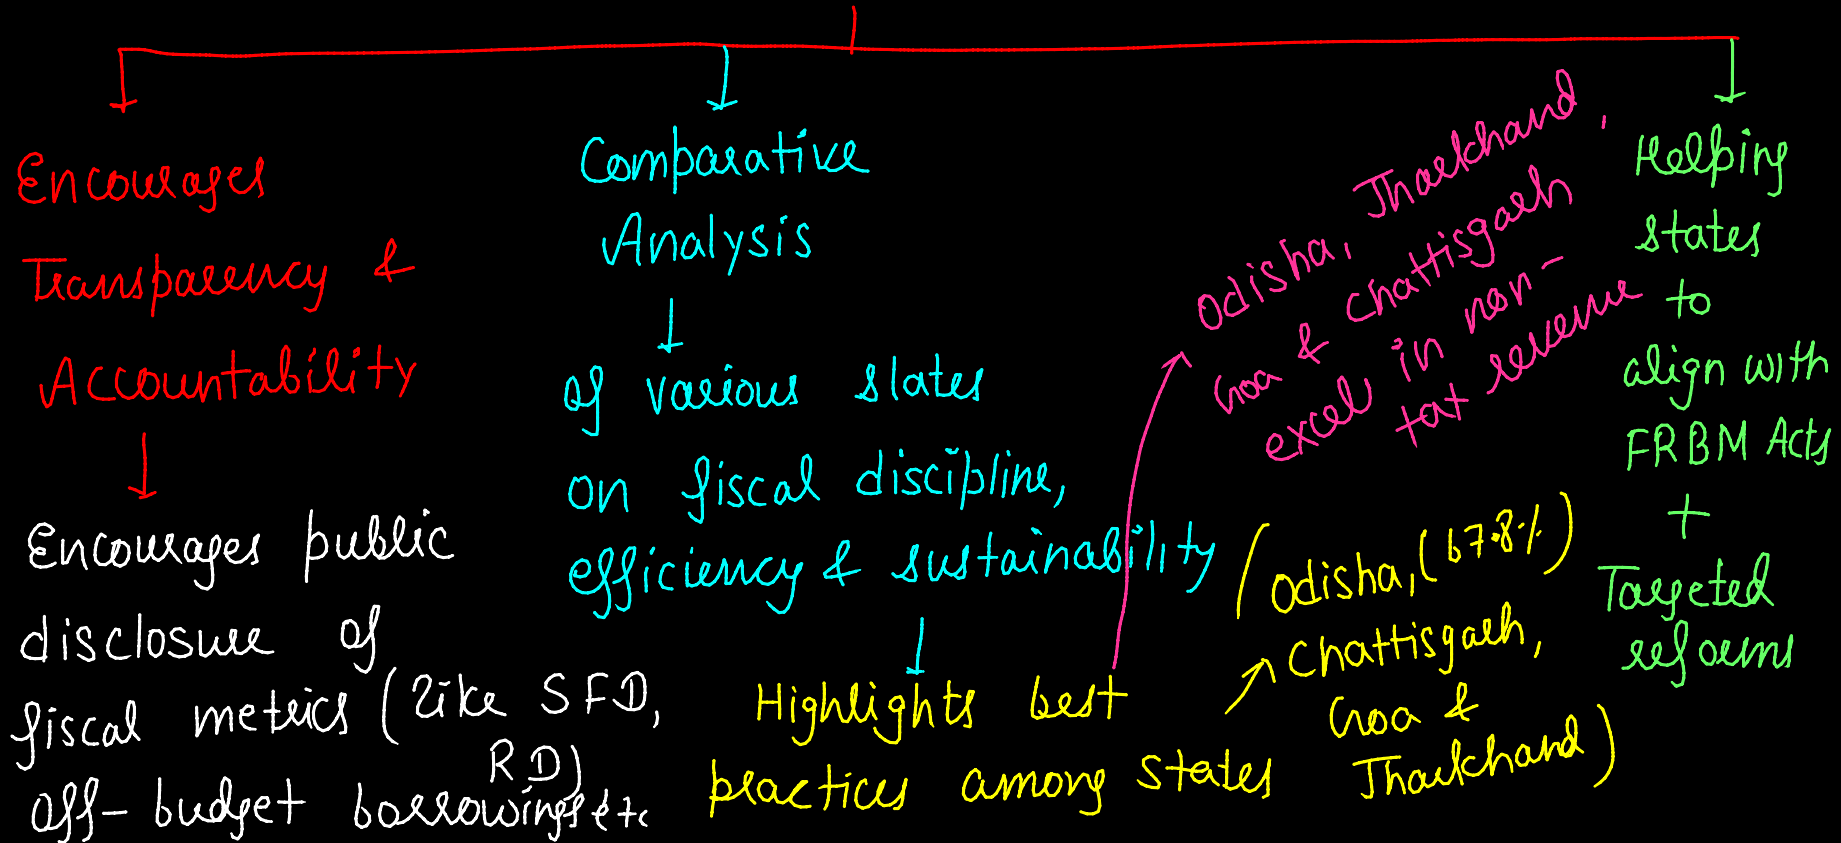 Encourages
Transparency &
Accountability
Encourages public
disclosure of
fiscal metrics (like SFD,
RD)
off-budget borrowings etc
Comparative
Analysis
of various states
on fiscal discipline,
efficiency & sustainability
Highlights best
practices among states
Odisha, Jharkhand,
Goa & Chattisgarh
excel in non-
tax revenue
(Odisha, (67.8%)
Chattisgarh,
Goa &
Jharkhand)
Helping
states
to
align with
FRBM Acts
+
Targeted
reforms